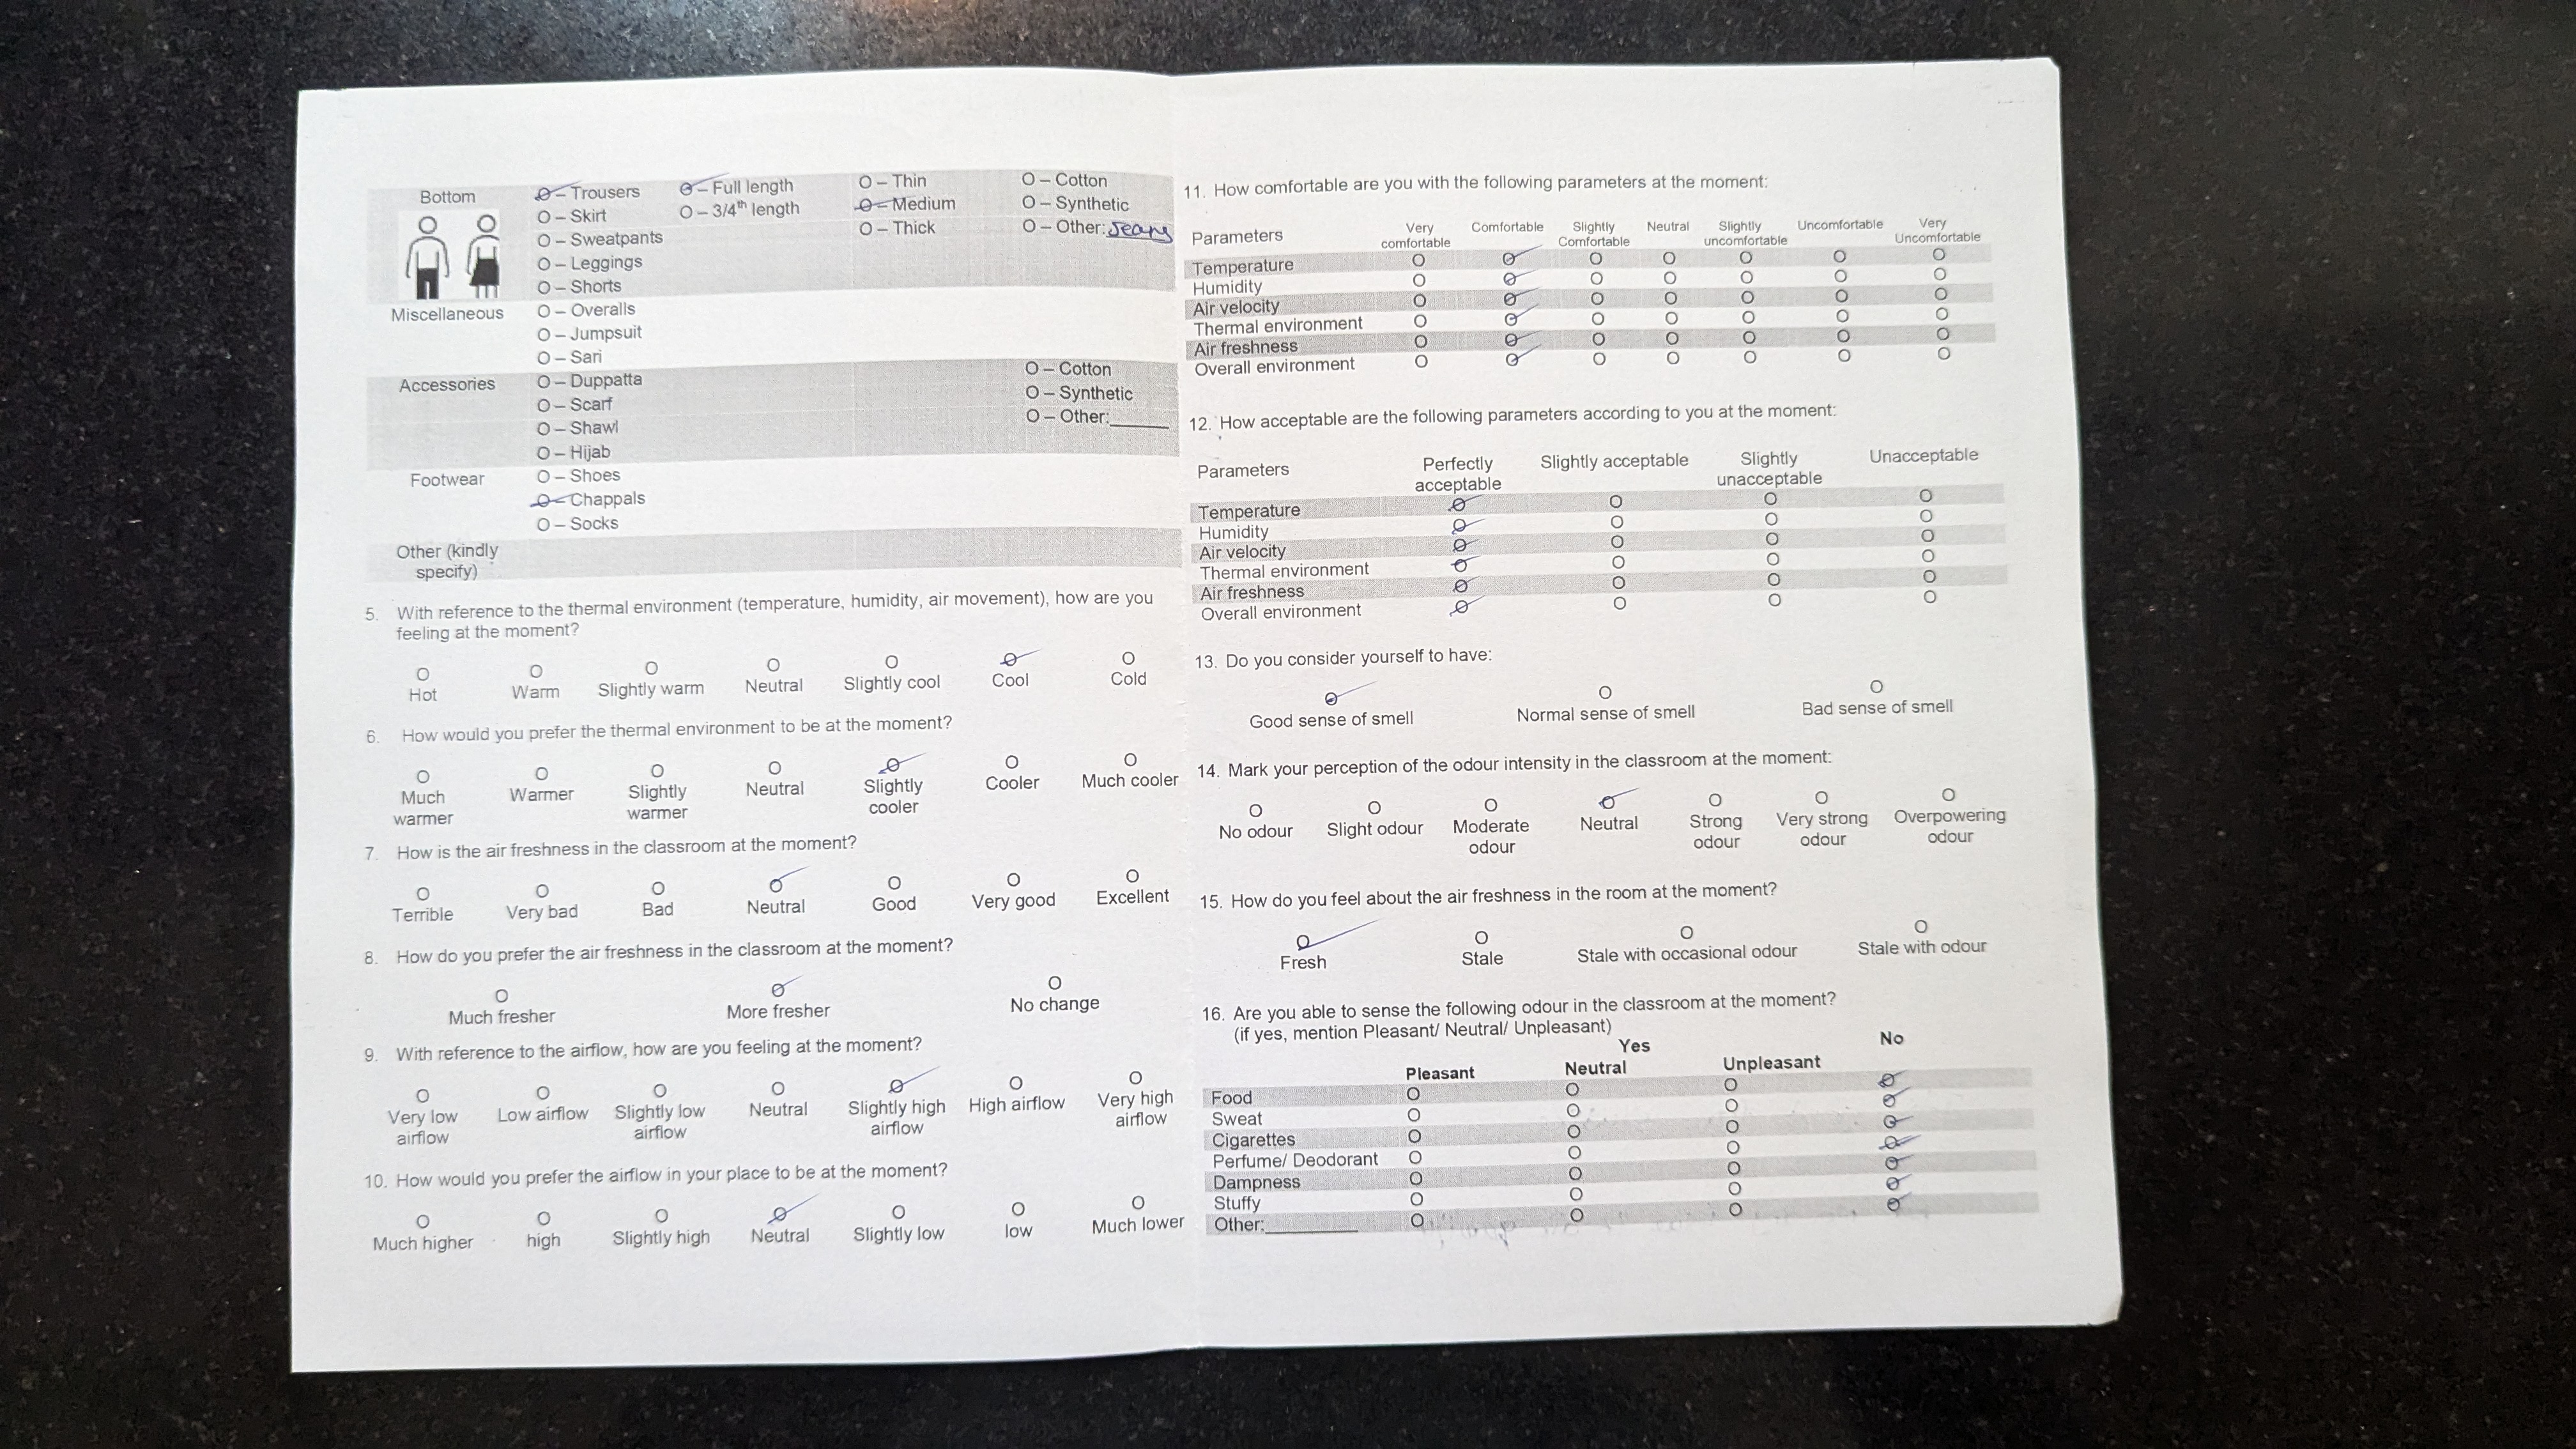 Bottom
O – Trousers
O – Skirt
O – Sweatpants
O – Leggings
O – Shorts
O – Full length
O – 3/4th length
O – Thin
O – Medium
O – Thick
O – Cotton
O – Synthetic
O – Other: Jeans
Miscellaneous
O – Overalls
O – Jumpsuit
O – Sari
Accessories
O – Duppatta
O – Scarf
O – Shawl
O – Hijab
O – Cotton
O – Synthetic
O – Other:______
Footwear
O – Shoes
O – Chappals
O – Socks
Other (kindly
specify)
5. With reference to the thermal environment (temperature, humidity, air movement), how are you
feeling at the moment?
O O O O O O O
Hot Warm Slightly warm Neutral Slightly cool Cool Cold
6. How would you prefer the thermal environment to be at the moment?
O O O O O O O
Much Warmer Slightly Neutral Slightly Cooler Much cooler
warmer warmer cooler
7. How is the air freshness in the classroom at the moment?
O O O O O O O
Terrible Very bad Bad Neutral Good Very good Excellent
8. How do you prefer the air freshness in the classroom at the moment?
O O O
Much fresher More fresher No change
9. With reference to the airflow, how are you feeling at the moment?
O O O O O O O
Very low Low airflow Slightly low Neutral Slightly high High airflow Very high
airflow airflow airflow airflow
10. How would you prefer the airflow in your place to be at the moment?
O O O O O O O
Much higher high Slightly high Neutral Slightly low low Much lower
11. How comfortable are you with the following parameters at the moment:
Parameters Very Comfortable Slightly Neutral Slightly Uncomfortable Very
comfortable Comfortable uncomfortable Uncomfortable
Temperature O O O O O O O
Humidity O O O O O O O
Air velocity O O O O O O O
Thermal environment O O O O O O O
Air freshness O O O O O O O
Overall environment O O O O O O O
12. How acceptable are the following parameters according to you at the moment:
Parameters Perfectly Slightly acceptable Slightly Unacceptable
acceptable unacceptable
Temperature O O O O
Humidity O O O O
Air velocity O O O O
Thermal environment O O O O
Air freshness O O O O
Overall environment O O O O
13. Do you consider yourself to have:
O O O
Good sense of smell Normal sense of smell Bad sense of smell
14. Mark your perception of the odour intensity in the classroom at the moment:
O O O O O O O
No odour Slight odour Moderate Neutral Strong Very strong Overpowering
odour odour odour odour
15. How do you feel about the air freshness in the room at the moment?
O O O O
Fresh Stale Stale with occasional odour Stale with odour
16. Are you able to sense the following odour in the classroom at the moment?
(if yes, mention Pleasant/ Neutral/ Unpleasant)
Yes No
Pleasant Neutral Unpleasant
Food O O O O
Sweat O O O O
Cigarettes O O O O
Perfume/ Deodorant O O O O
Dampness O O O O
Stuffy O O O O
Other:__________ O O O O